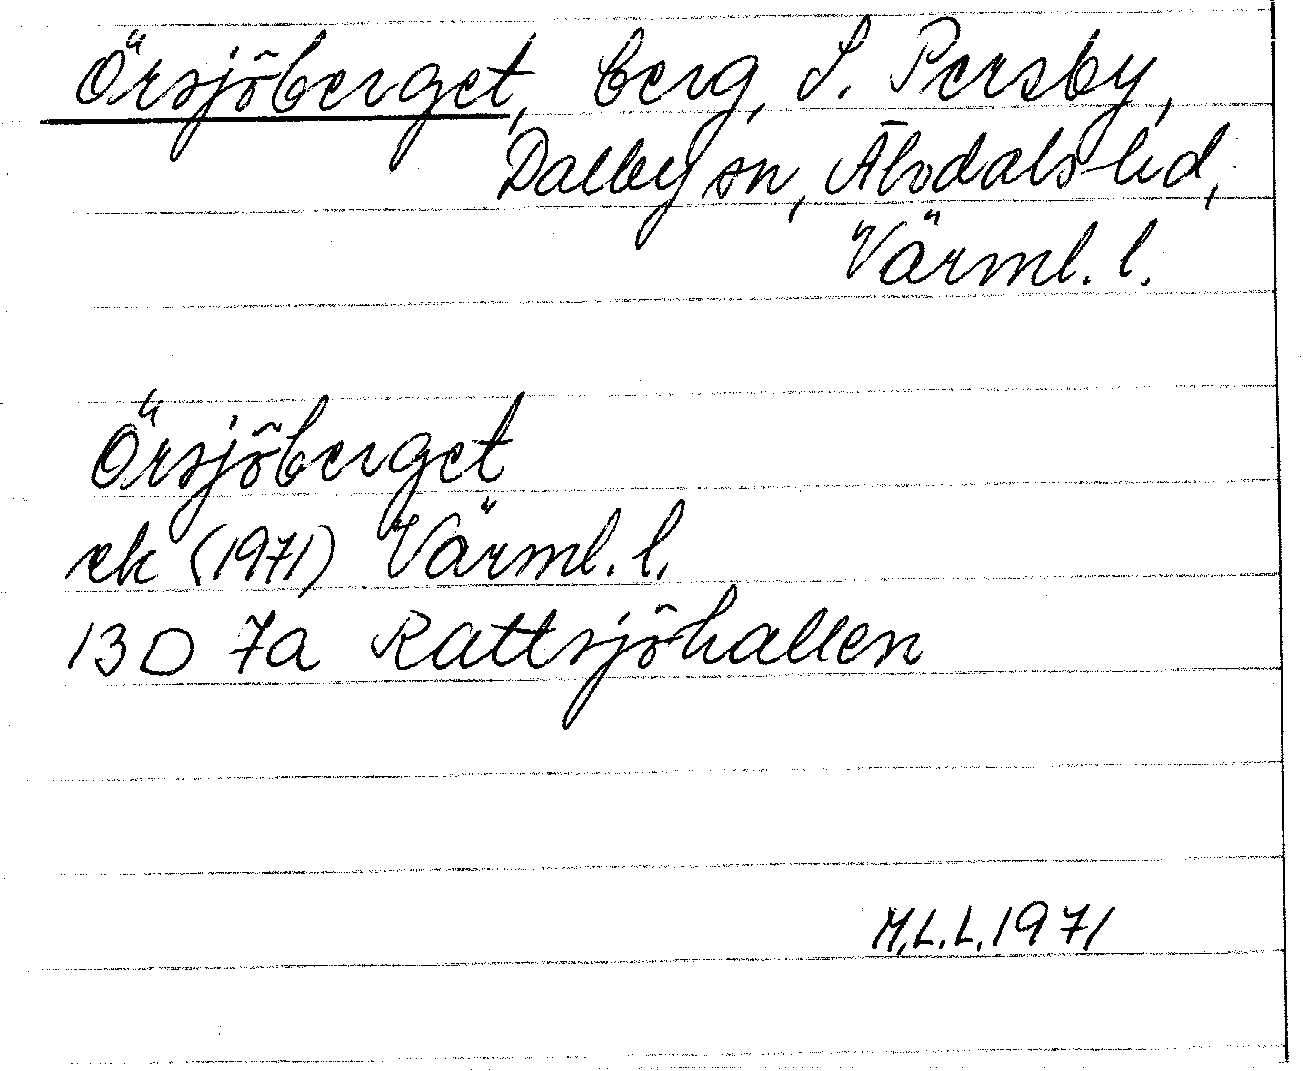 Örsjöberget, berg, S. Persby,
Dalby sn, Älvdals hd,
Värml. l.
Örsjöberget
ek (1971) Värml. l.
13D 7a Rattsjöhallen
M.L.L. 1971